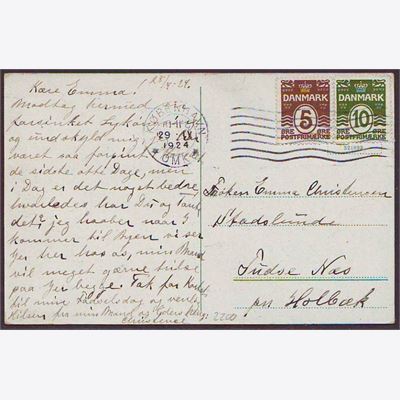 28/4-24.
Kære Emma!
Modtag hermed
forsinket
og undskyld mig,
været saa
de sidste otte Dage, men
i Dag er det noget bedre,
hvorledes har Du og
det? jeg haaber naar I
kommer til Byen vi ser
Jer hos os, min Mand
vil meget gærne hilse
paa Jer begge. Tak for Kortet
til min Fødselsdag og venlig
Hilsen fra min Mand og
Christence
2200
29
1924
OMK
DANMARK
5
ØRE ØRE
POSTFRIMÆRKE
DANMARK
10
ØRE ØRE
POSTFRIMÆRKE
Frøken Emma Christensen
Stadslund
Tudse Næs
pr Holbæk